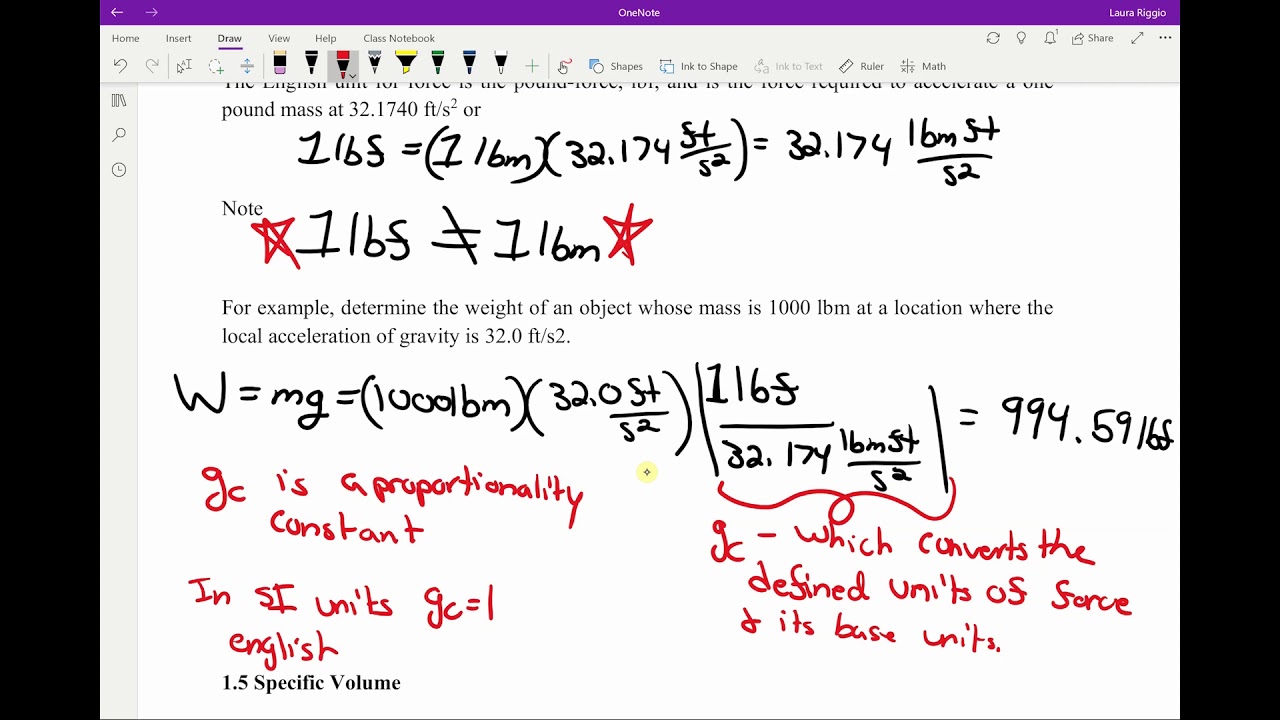 OneNote
Laura Riggio
Home Insert Draw View Help Class Notebook
Share
Shapes Ink to Shape Ink to Text Ruler Math
The English unit for force is the pound-force, lbf, and is the force required to accelerate a one
pound mass at 32.1740 ft/s² or
1 lbf = (1 lbm)(32.174 ft/s²) = 32.174 lbm ft/s²
Note
1 lbf ≠ 1 lbm
For example, determine the weight of an object whose mass is 1000 lbm at a location where the
local acceleration of gravity is 32.0 ft/s2.
W = mg = (1000 lbm)(32.0 ft/s²) | 1 lbf / 32.174 lbm ft/s² | = 994.59 lbf
gc is a proportionality
constant
gc - which converts the
defined units of force
& its base units.
In SI units gc = 1
english
1.5 Specific Volume